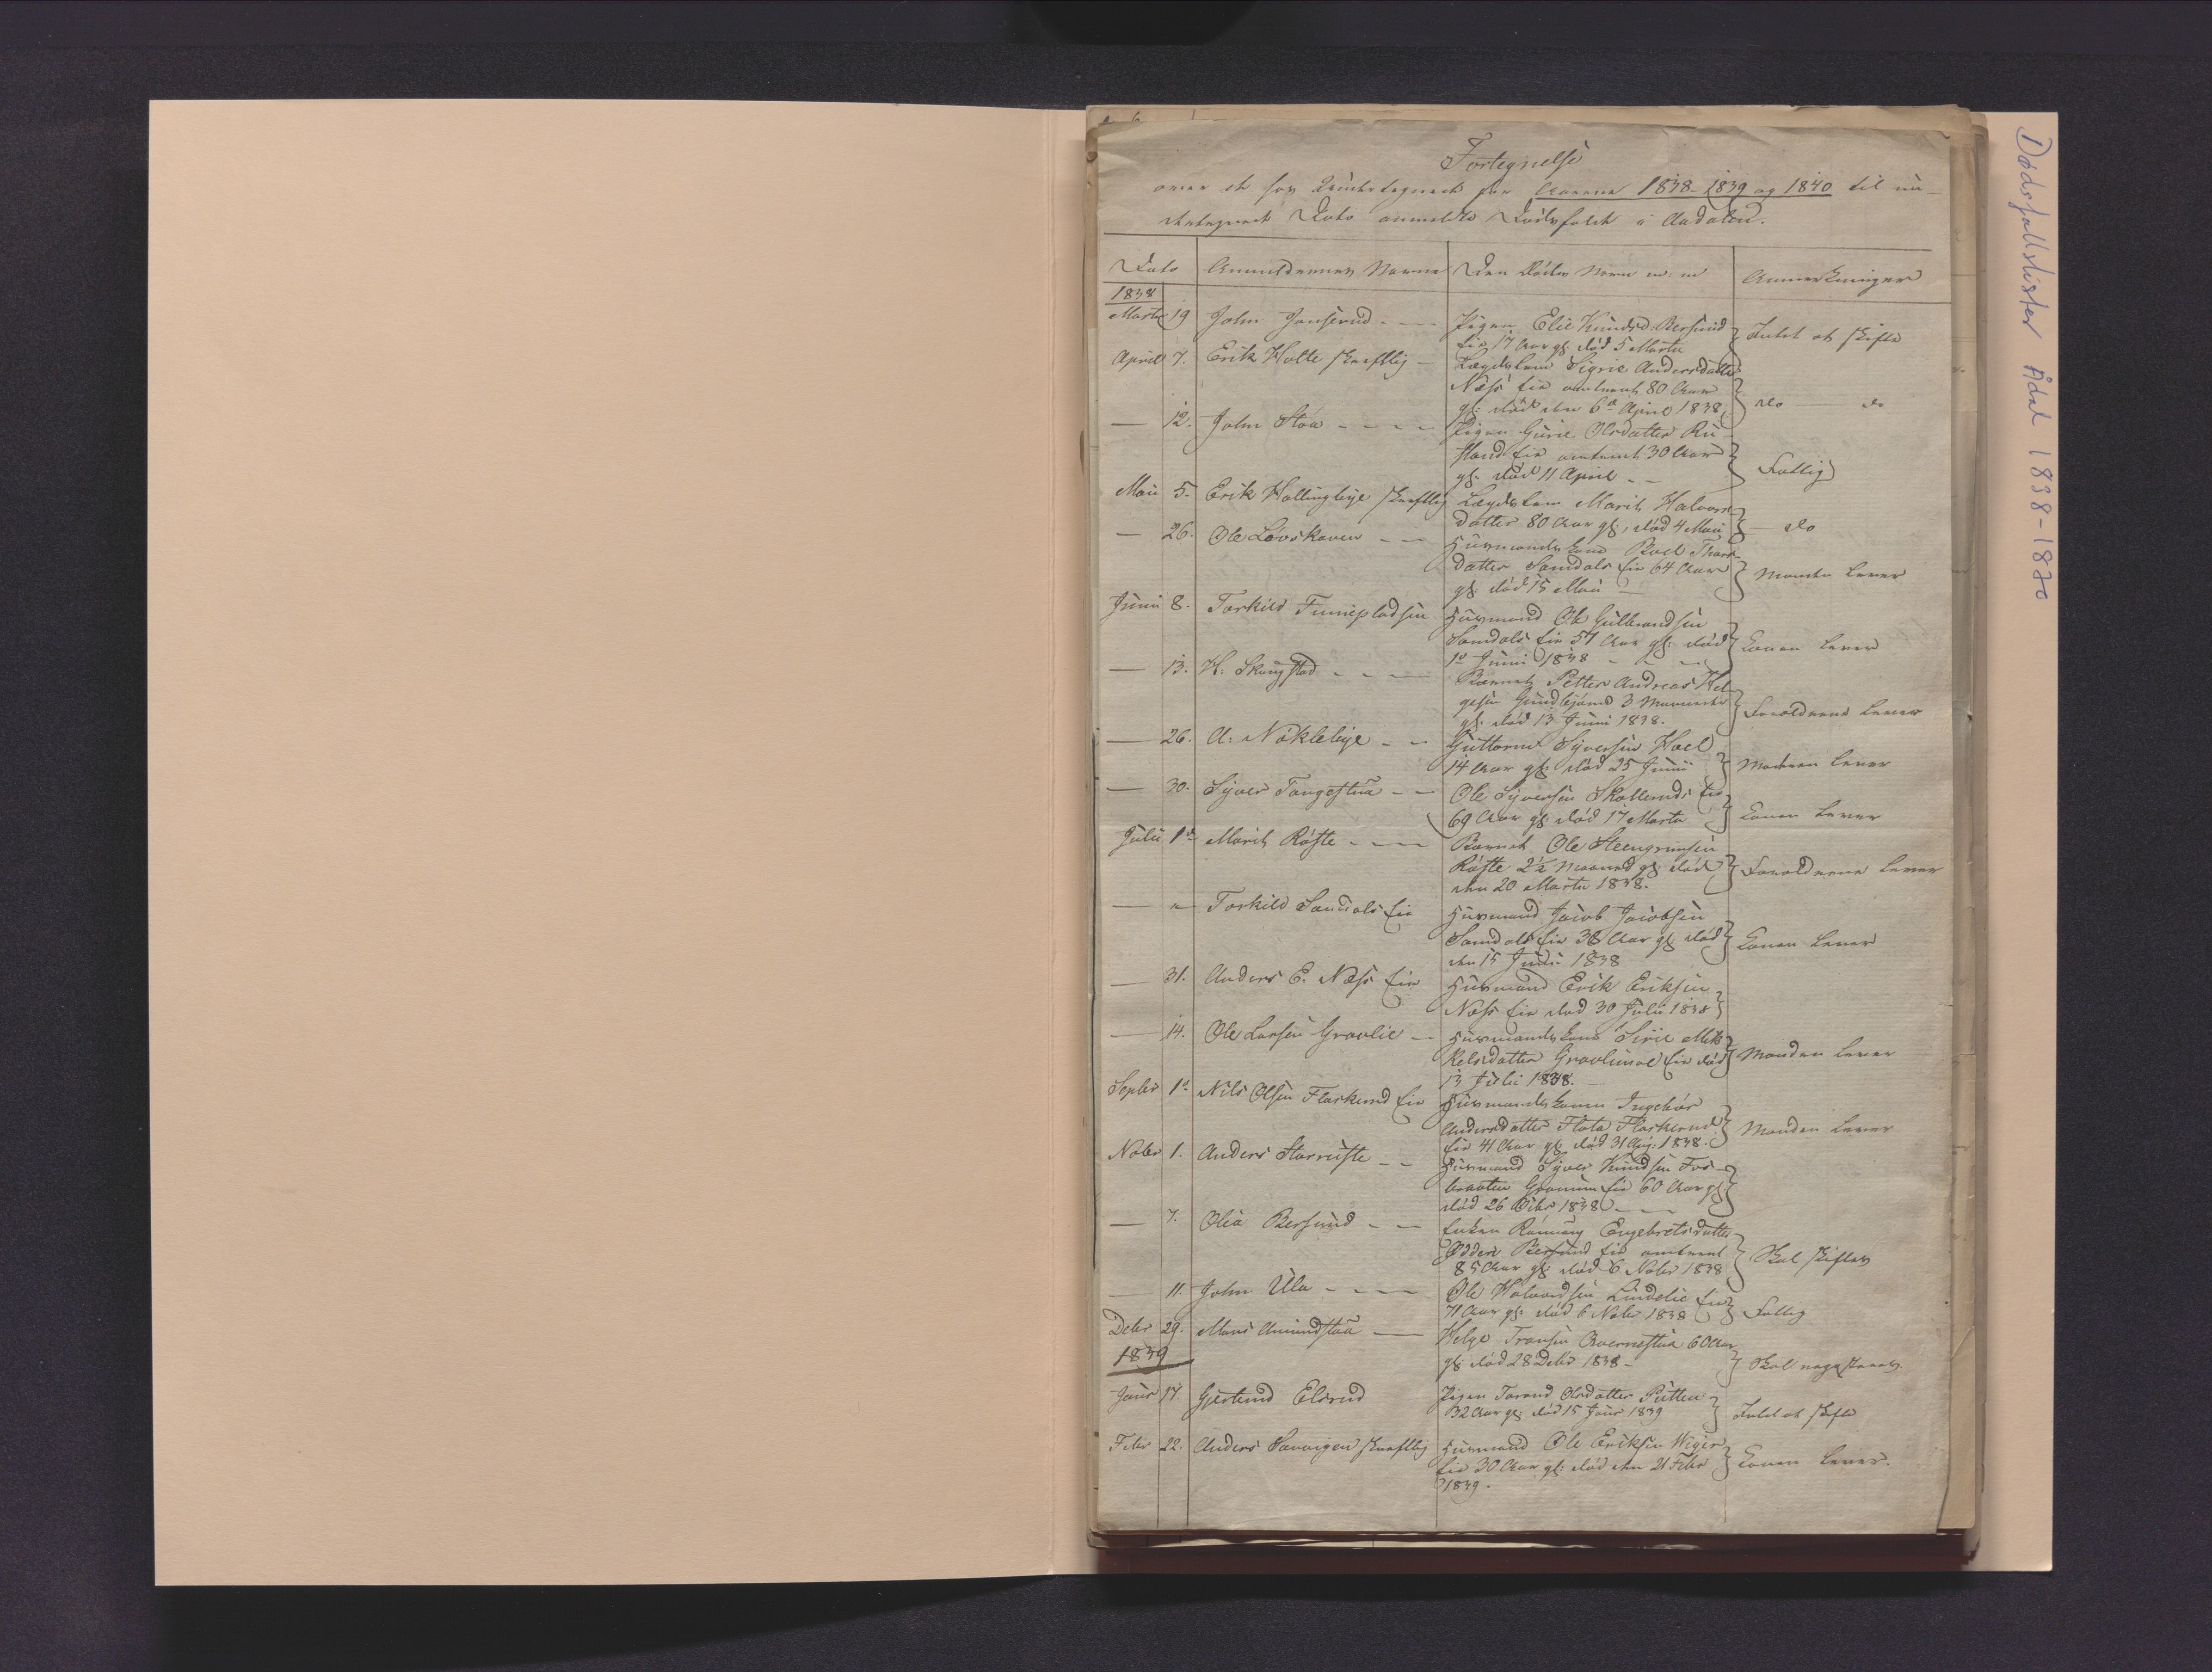 Dødsfallslister Ådal 1838-1870
Fortegnelse
over de for Undertegnede for Aarene 1838-1839 og 1840 til un-
dertegnede Dato anmeldte Dødsfald i Aadalen.
Dato Anmeldernes Navne Den Dødes Navn m: m Anmerkninger
1838
Martii 19 John Jonserud - - Pigen Elie Knudsd. Bersund
Eie 17 Aar gl. død 5 Martii Intet at skifte
April 7. Erik Holte skriftlig - Lægdslem Sigrie Andersdatter
Næss Eie omtrent 80 Aar
gl: død den 6te April 1838 do do
— 12. John Stöa - - - - Pigen Gurie Olsdatter Ru
stand Eie omtrent 30 Aar
gl. død 11 April - - Fattig
Maii 5. Erik Hallingbye skriftlig Lægdslem Marit Halvors
datter 80 Aar gl, død 4 Maii - do
— 26. Ole Lövskaven - - Huusmandskone Boel Thors
datter Samdals Eie 64 Aar
gl. død 15 Maii - Manden lever
Junii 8. Torkild Finnepladsen Huusmand Ole Gulbrandsen
Samdals Eie 57 Aar gl. død
1ste Junii 1838 - - - Konen lever
— 13. H: Skougstad - - - Barnet Petter Andreas Hel-
gesen Gundbjörnd 3 Maaneder
gl. død 13 Junii 1838. Forældrene lever
— 26. A: Nökleby - - Guttorm Syversen Hoel
14 Aar gl. død 25 Junii Moderen lever
— 30. Syver Tangestua - - Ole Syversen Skollerud Eie
69 Aar gl. død 17 Martii Konen lever
Julii 1ste Marit Röste - - - Barnet Ole Steengrimsen
Röste 2½ Maaned gl. død
den 20 Martii 1838. Forældrene lever
— " Torkild Samdals Eie Huusmand Jacob Jacobsen
Samdals Eie 38 Aar gl. død
den 15 Junii 1838 Konen lever
— 31. Anders E. Næss Eie Huusmand Erik Eriksen
Næss Eie død 30 Julii 1838
— 14. Ole Larsen Gravlie - Huusmandskone Sirie Mik
kelsdatter Gravlimoe Eie død
13 Julii 1838. Manden lever
Septbr 1ste Nils Olsen Flaskerud Eie Huusmandskonen Ingebor
Andersdatter Flata Flaskerud
Eie 41 Aar gl. død 31 Aug. 1838. Manden lever
Novbr 1. Anders Storruste - - Huusmand Syver Knudsen Fos-
braaten Eie 60 Aar gl
død 26 Octbr 1838 - -
— 7. Olia Bersund - - Enken Rönnoug Engebretsdatter
Odden Bersund Eie omtrent
85 Aar gl. død 6 Novbr 1838 Skal skiftes
— 11. John Ulla - - - - Ole Halvordsen Lindelie Eie
71 Aar gl. død 6 Novbr 1838 Fattig
Decbr 29. Mons Amundstua — Helge Tronsen Qvernestua 60 Aar
gl. død 28 Decbr 1838 -
1839
Janr 17 Gjertrud Elsrud Pigen Torand Olsdatter Putten
32 Aar gl. død 15 Janr 1839 Intet at skifte
Febr 22. Anders skriftlig Huusmand Ole Eriksen
Eie 30 Aar gl: død den 21 Febr
1839 - Konen lever.